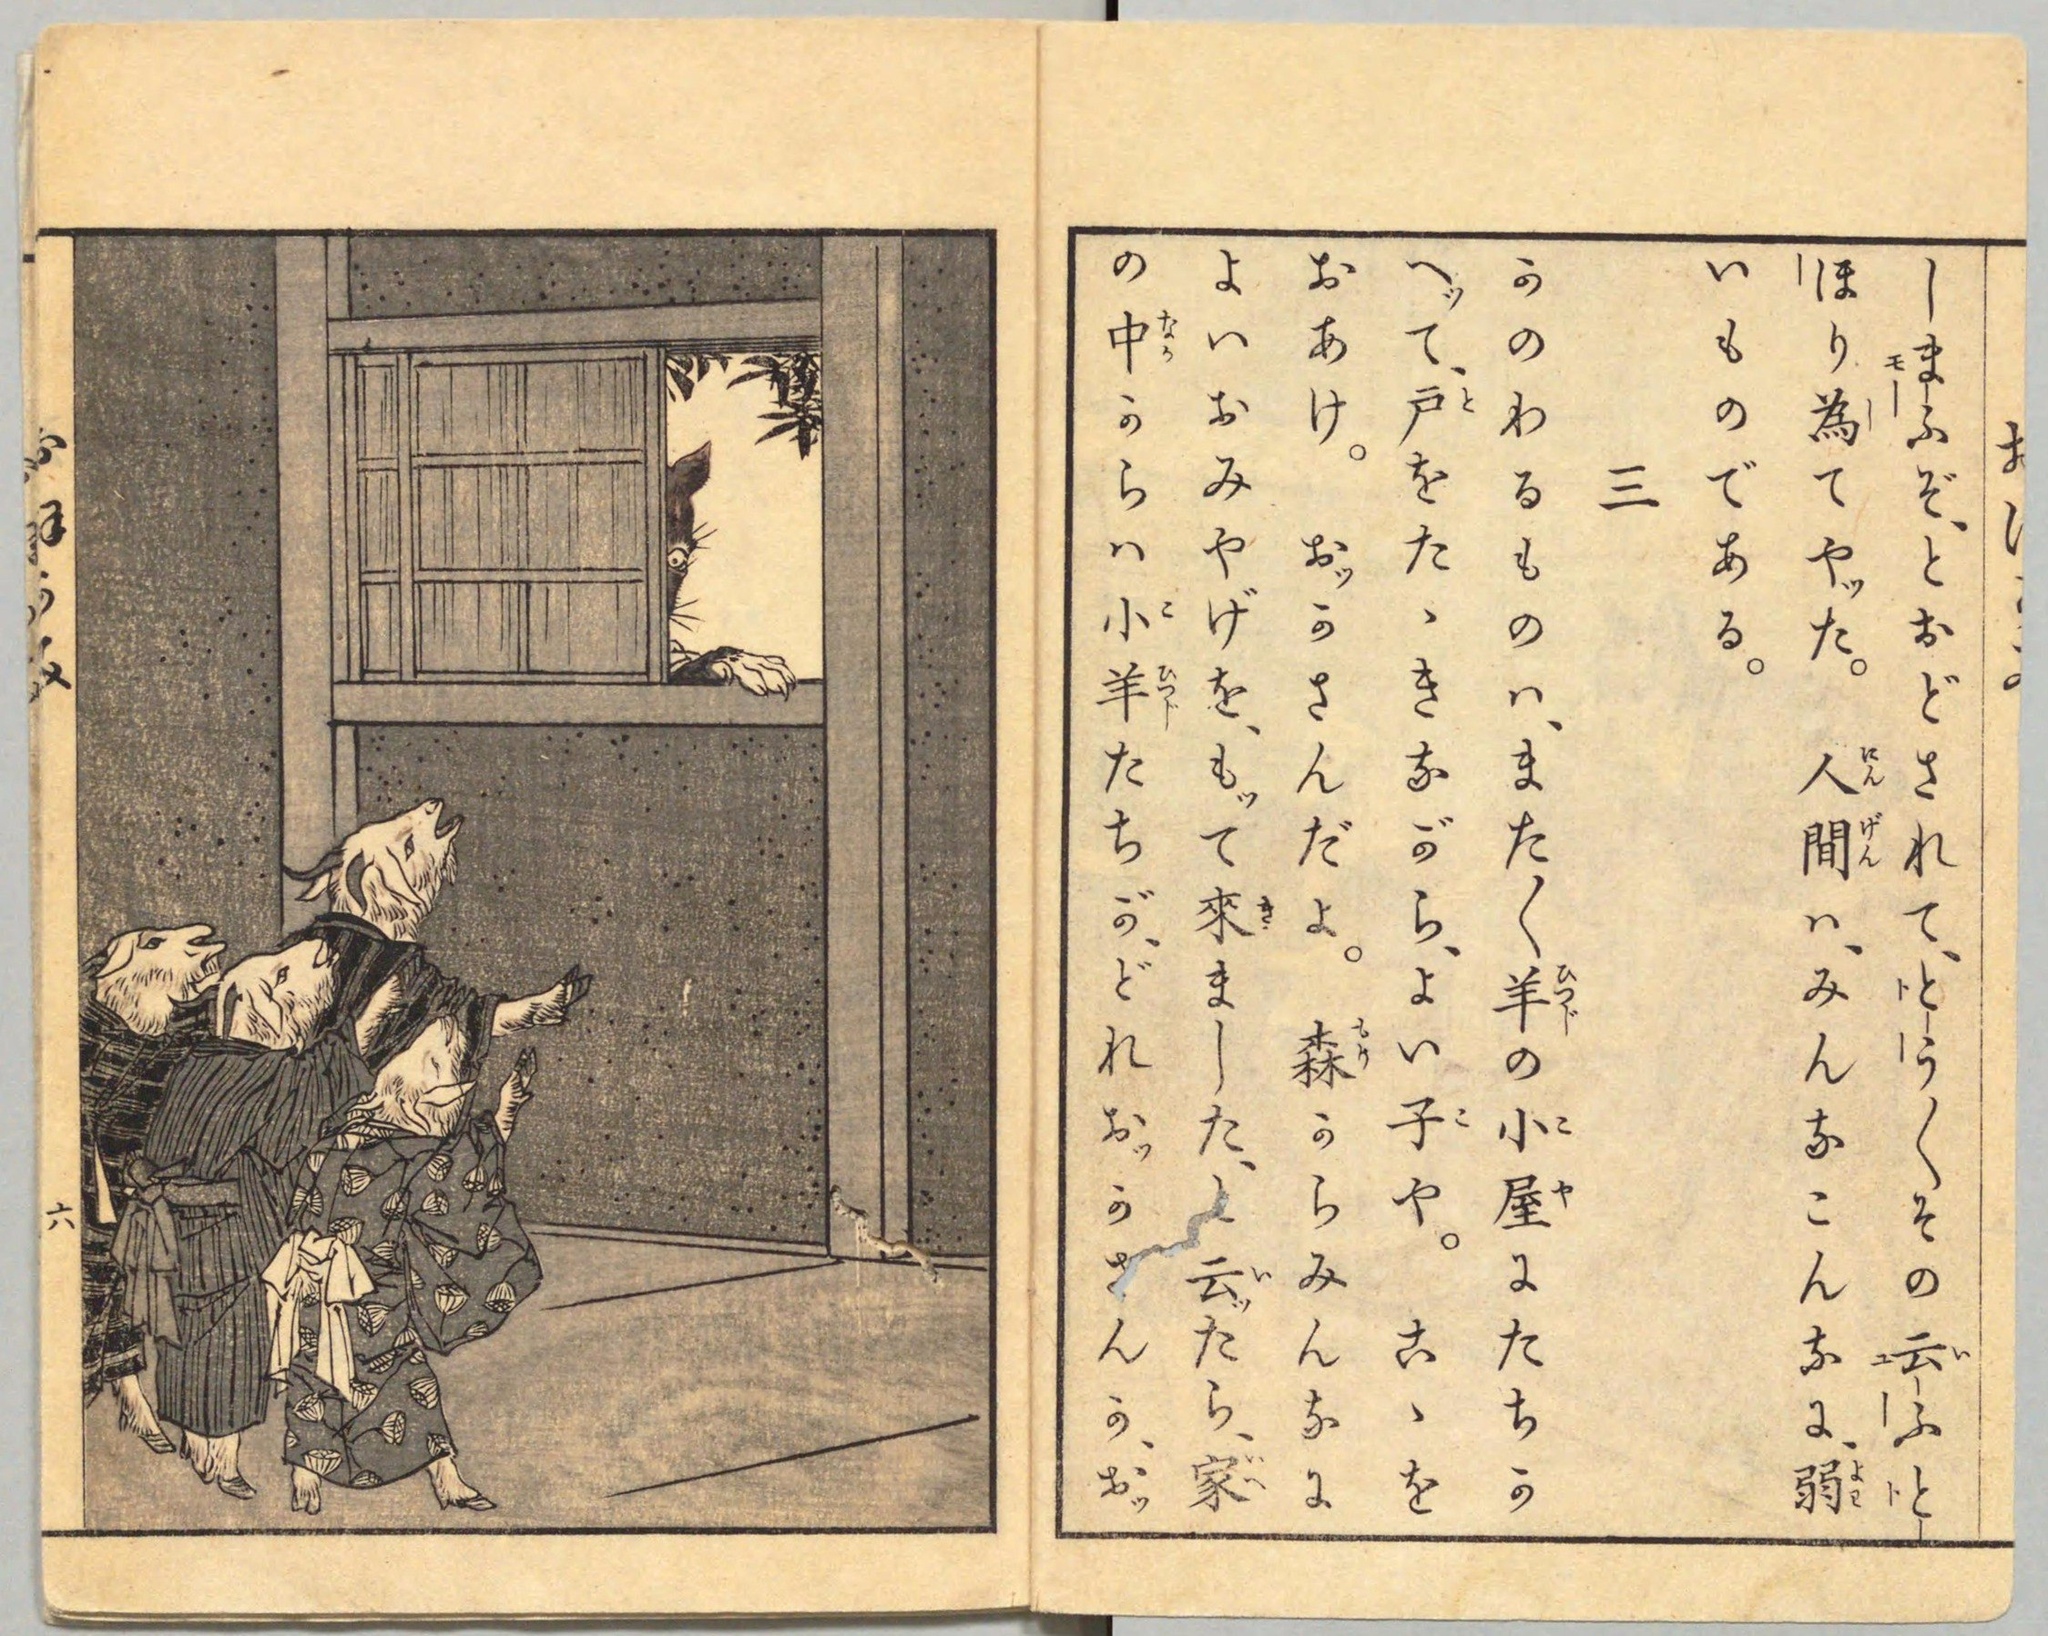 しまふぞ、とおどされて、とう〱その云ふと
ほり為てやッた。　人間ハ、みんなこんなに、弱
いものである。
三
かのわるものハ、また〱羊の小屋にたちか
へッて、戸をたゝきながら、よい子や。　こゝを
おあけ。　おッかさんだよ。　森からみんなに
よいおみやげを、もッて來ました、と云ッたら、家
の中からハ小羊たちが、どれおッかさんか、おッ
六